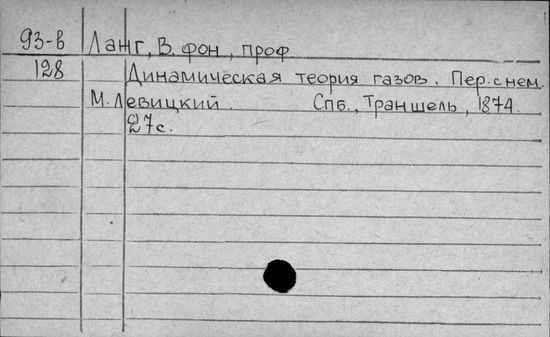 93-в Ланг, В. фон, проф
128 Динамическая теория газов. Пер. с нем.
М. Левицкий. Спб., Траншель, 1874.
27с.